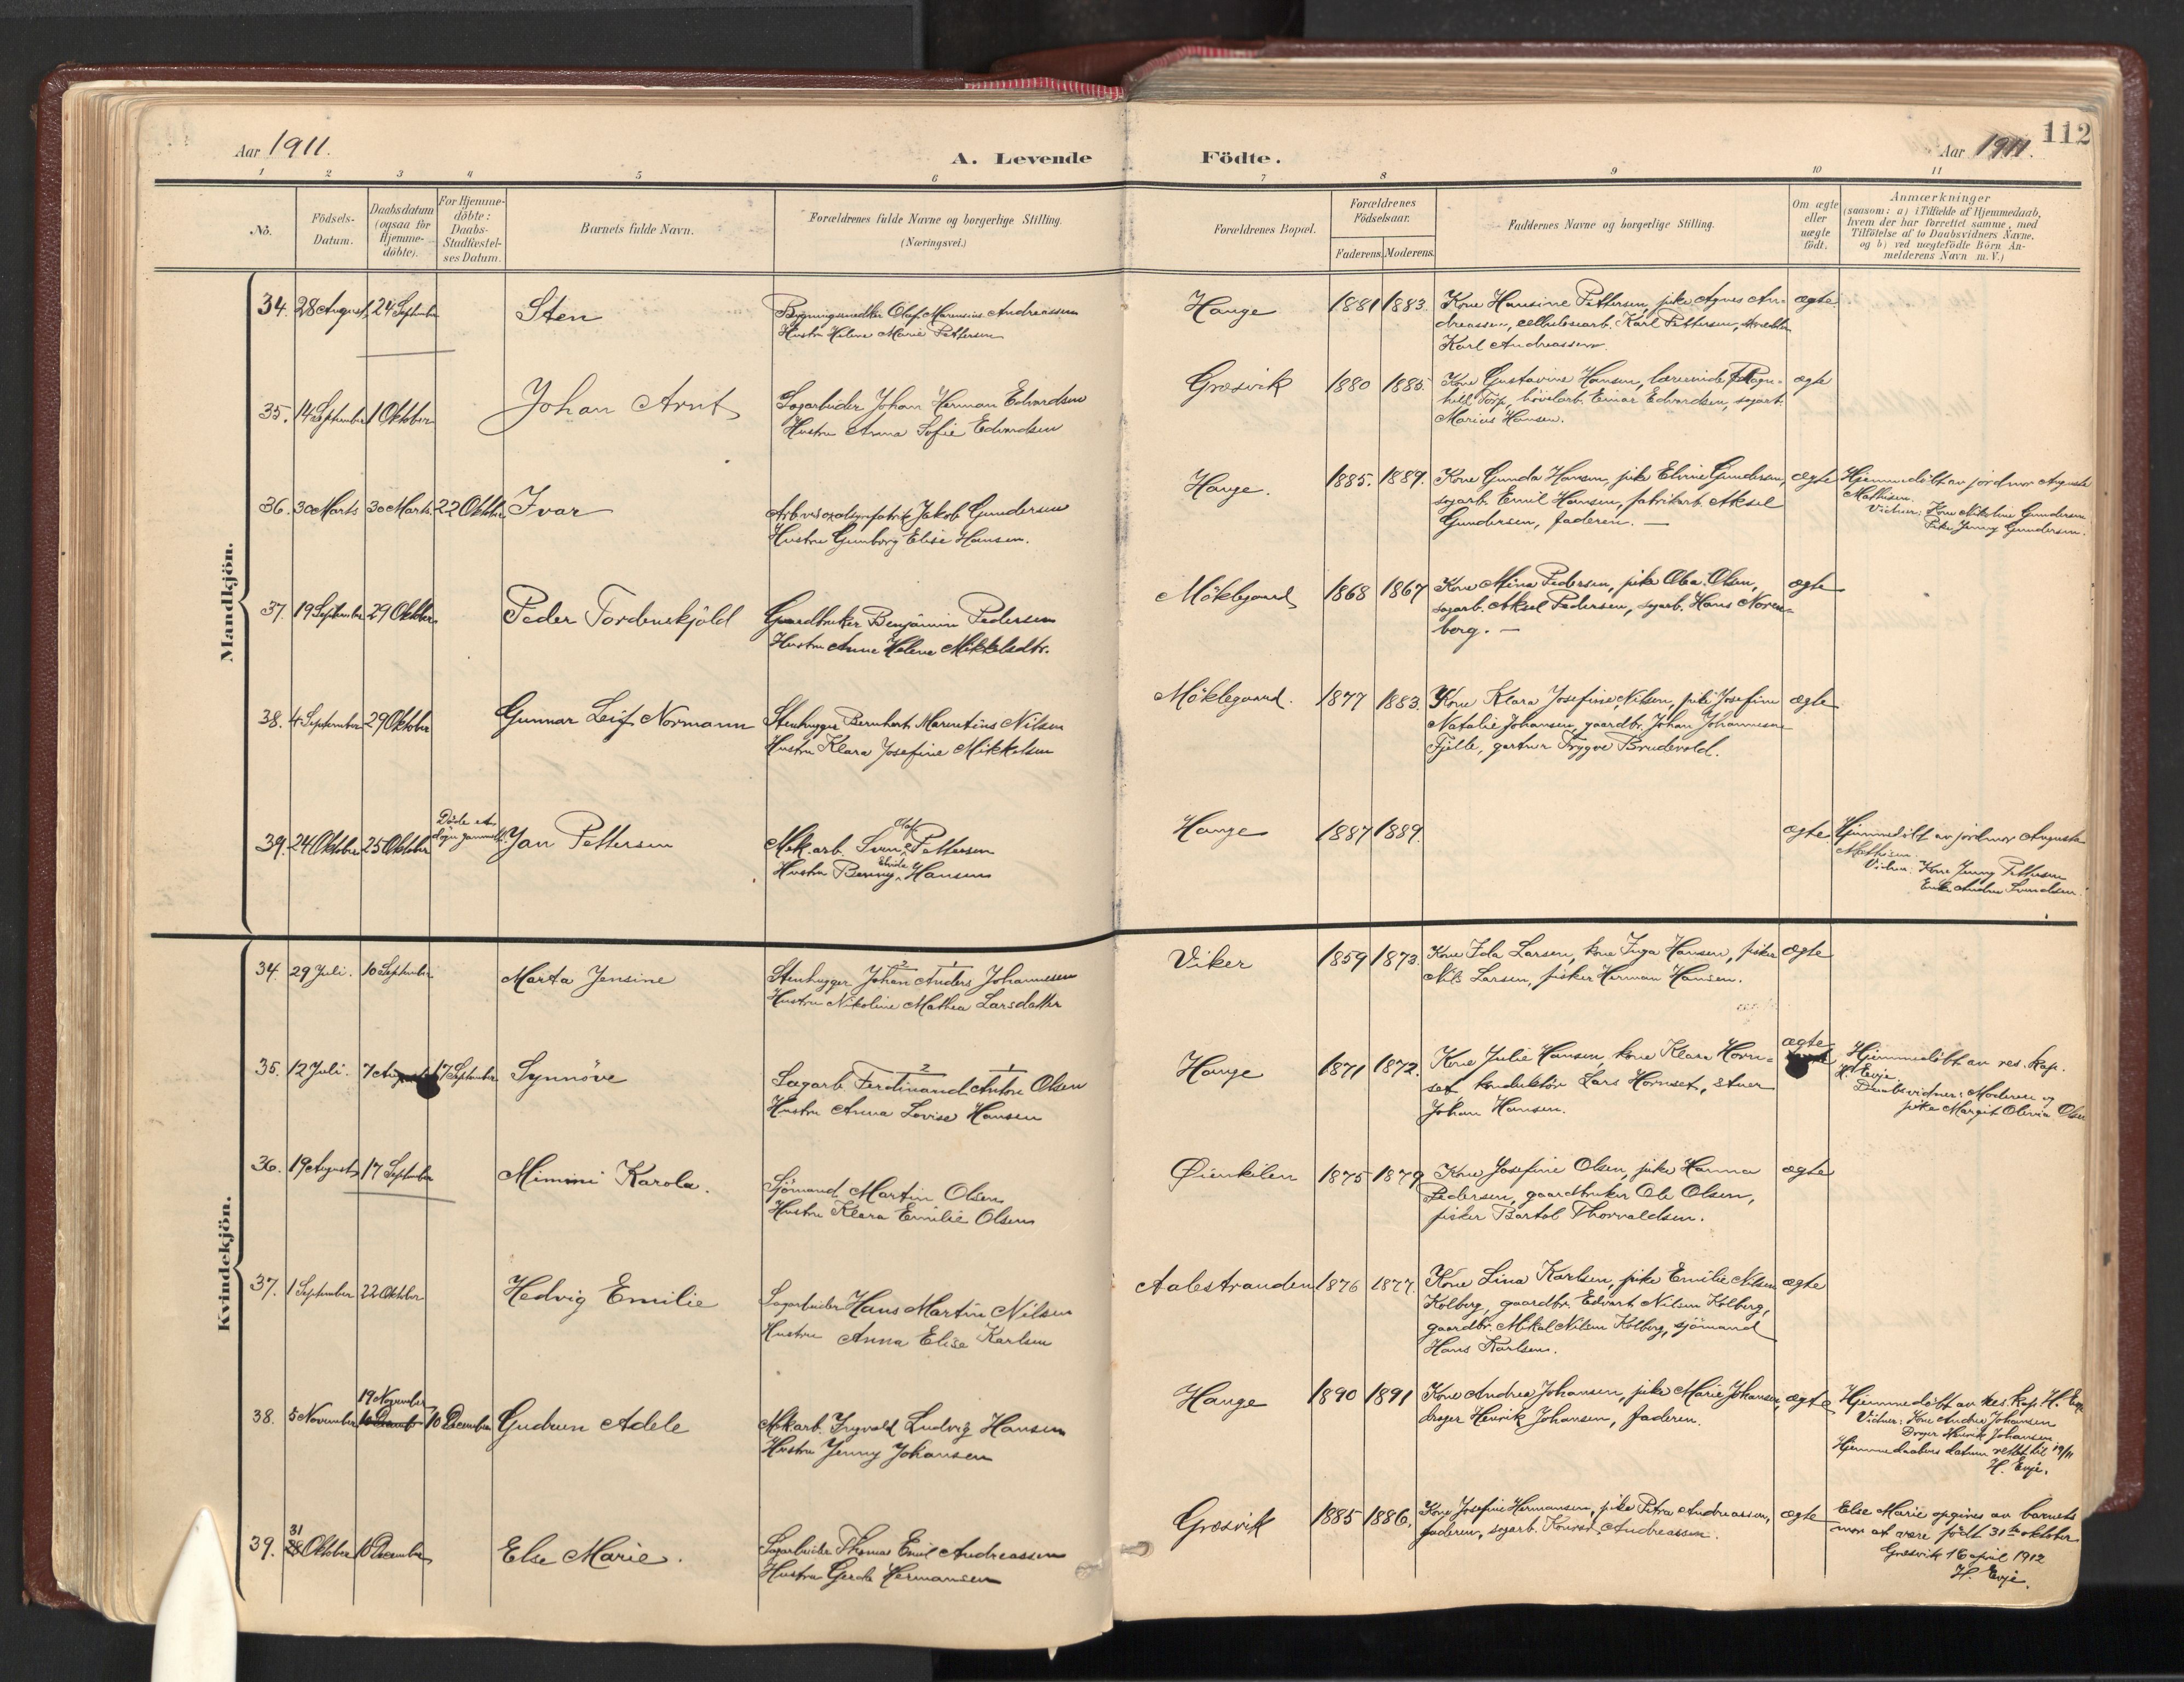 Aar 1911.
A. Levende Födte.
Aar 1911.
112
1 2 3 4 5 6 7 8 9 10 11
No.
Födsels-
Datum.
Daabsdatum
(ogsaa for
Hjemme-
döbte).
For Hjemme-
döbte:
Daabs-
Stadfæstel-
ses Datum.
Barnets fulde Navn.
Forældrenes fulde Navne og borgerlige Stilling.
(Næringsvei.)
Forældrenes Bopæl.
Forældrenes
Födselsaar.
Faderens. Moderens.
Faddernes Navne og borgerlige Stilling.
Om ægte
eller
uægte
født.
Anmærkninger
(saasom: a) i Tilfælde af Hjemmedaab,
hvem der har forrettet samme, med
Tilföielse af to Daabsvidners Navne.
og b) ved uægtefödte Börn An-
melderens Navn m. V.)
Mandkjön.
34. 28 August 24 September Sten
Bygningssnedker Olaf Marensius Andreassen
Hustru Helene Marie Pettersen
Hauge 1881 1883.
Kone Hansine Pettersen, pike Agnes An-
dreassen, cellulosearb. Karl Pettersen,
Karl Andreassen.
ægte
35. 14 September 1 Oktober Johan Arnt
Sagarbeider Johan Herman Edvardsen
Hustru Anna Sofie Edvardsen
Græsvik 1880 1885.
Kone Gustavine Hansen, lærerinde Ragn-
hild Torp, hövelarb. Einar Edvardsen, sagarb.
Marius Hansen.
ægte
36. 30 Marts 30 Marts 22 Oktbr. Ivar
Arb. ved oxalsyrefabrik Jakob Gundersen
Hustru Gunborg Elise Hansen.
Hauge. 1885. 1889.
Kone Gunda Hansen, pike Elvine Gundersen,
sagarb. Emil Hansen, fabrikarb. Aksel
Gundersen, faderen. —
ægte
Hjemmedöbt av jordmor Augusta
Mathisen.
Vidner: Kone Nikoline Gundersen
Pike Jenny Gundersen.
37. 19 September 29 Oktober Peder Tordenskjöld
Gaardbruker Benjamin Pedersen
Hustru Anne Helene Mikkelsdtr.
Möklegaard 1868 1867
Kone Mina Pedersen, pike Olea Olsen,
sagarb. Aksel Pedersen, sagarb. Hans Noren-
berg. —
ægte
38. 4 September 29 Oktober Gunnar Leif Normann
Stenhugger Bernhart Marentius Nilsen
Hustru Klara Josefine Mikkelsen
Möklegaard. 1877 1883.
Kone Klara Josefine Nilsen, pike Josefine
Natalie Johansen, gaardbr. Johan Johannesen
Fjelle, gartner Trygve Brudevold.
ægte
39. 24 Oktober 25 Oktober
Döde et
dögn gammelt.
Jan Pettersen
Olaf
Mek. arb. Sven Pettersen
Hustru Benny Hansen
Hauge 1887 1889.
ægte.
Hjemmedöbt av jordmor Augusta
Mathisen.
Vidner: Kone Jenny Pettersen
Enke Andrea Svendsen.
Kvindekjön.
34. 29 Juli. 10 September Marta Jensine
2 1
Stenhugger Johan Anders Johannessen
Hustru Nikoline Mathea Larsdatter
Viker 1859 1873.
Kone Larsen, kone Inga Hansen, fisker
Nils Larsen, fisker Herman Hansen.
ægte
35. 12 Juli. 7 August 17 September Synnöve
2 1
Sagarb. Ferdinand Anton Olsen
Hustru Anna Lovise Hansen
Hauge 1871 1872.
Kone Julie Hansen, kone Klara Horn-
set, konduktör Lars Hornset, stuer
Johan Hansen.
ægte
Hjemmedöbt av res. kap.
H. Evje.
Daabsvidner: Moderen og
pike Margit Olevia Olsen
36. 19 August 17 September Mimmi Karola.
Sjömand Martin Olsen
Hustru Klara Emilie Olsen
Øienkilen 1875 1879
Kone Josefine Olsen, pike Hanna
Pedersen, gaardbruker Ole Olsen,
fisker Bartol Thorvaldsen.
ægte
37. 1 September 22 Oktober Hedvig Emilie
Sagarbeider Hans Martin Nilsen
Hustru Anna Elise Karlsen
Aalestranden 1876 1877.
Kone Lina Karlsen, pike Emilie Nilsen
Kolberg, gaardbr. Edvart Nilsen Kolberg,
gaardbr. Mikal Nilsen Kolberg, sjömand
Hans Karlsen.
ægte
19 November
38. 5 November 10 Decemb 10 December Gudrun Adele
Mek. arb. Ingvald Ludvig Hansen
Hustru Jenny Johansen
Hauge 1890 1891
Kone Andrea Johansen, pike Marie Johansen,
dreyer Henrik Johansen, faderen.
ægte
Hjemmedöbt av Res. Kap. H. Evje
Vidner: Kone Andrea Johansen
Dreyer Henrik Johansen
Hjemmedaabens datum rettet til 19/11
H. Evje.
31
39. 28 Oktober 10 December Else Marie.
Sagarbeider Thomas Emil Andreassen
Hustru Gerda Hermansen
Græsvik 1885 1886.
Kone Josefine Hermansen, pike Petra Andreassen,
faderen, sagarb. Andreassen.
ægte
Else Marie opgives av barnets
mor at være födt 31te oktober
Græsvik 16 april 1912
H. Evje.